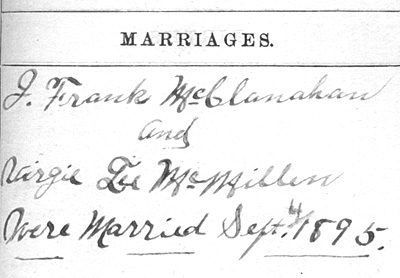 MARRIAGES.
J. Frank McClanahan
and
Virgie Lee McMillen
Were Married Sept. 4/1895.